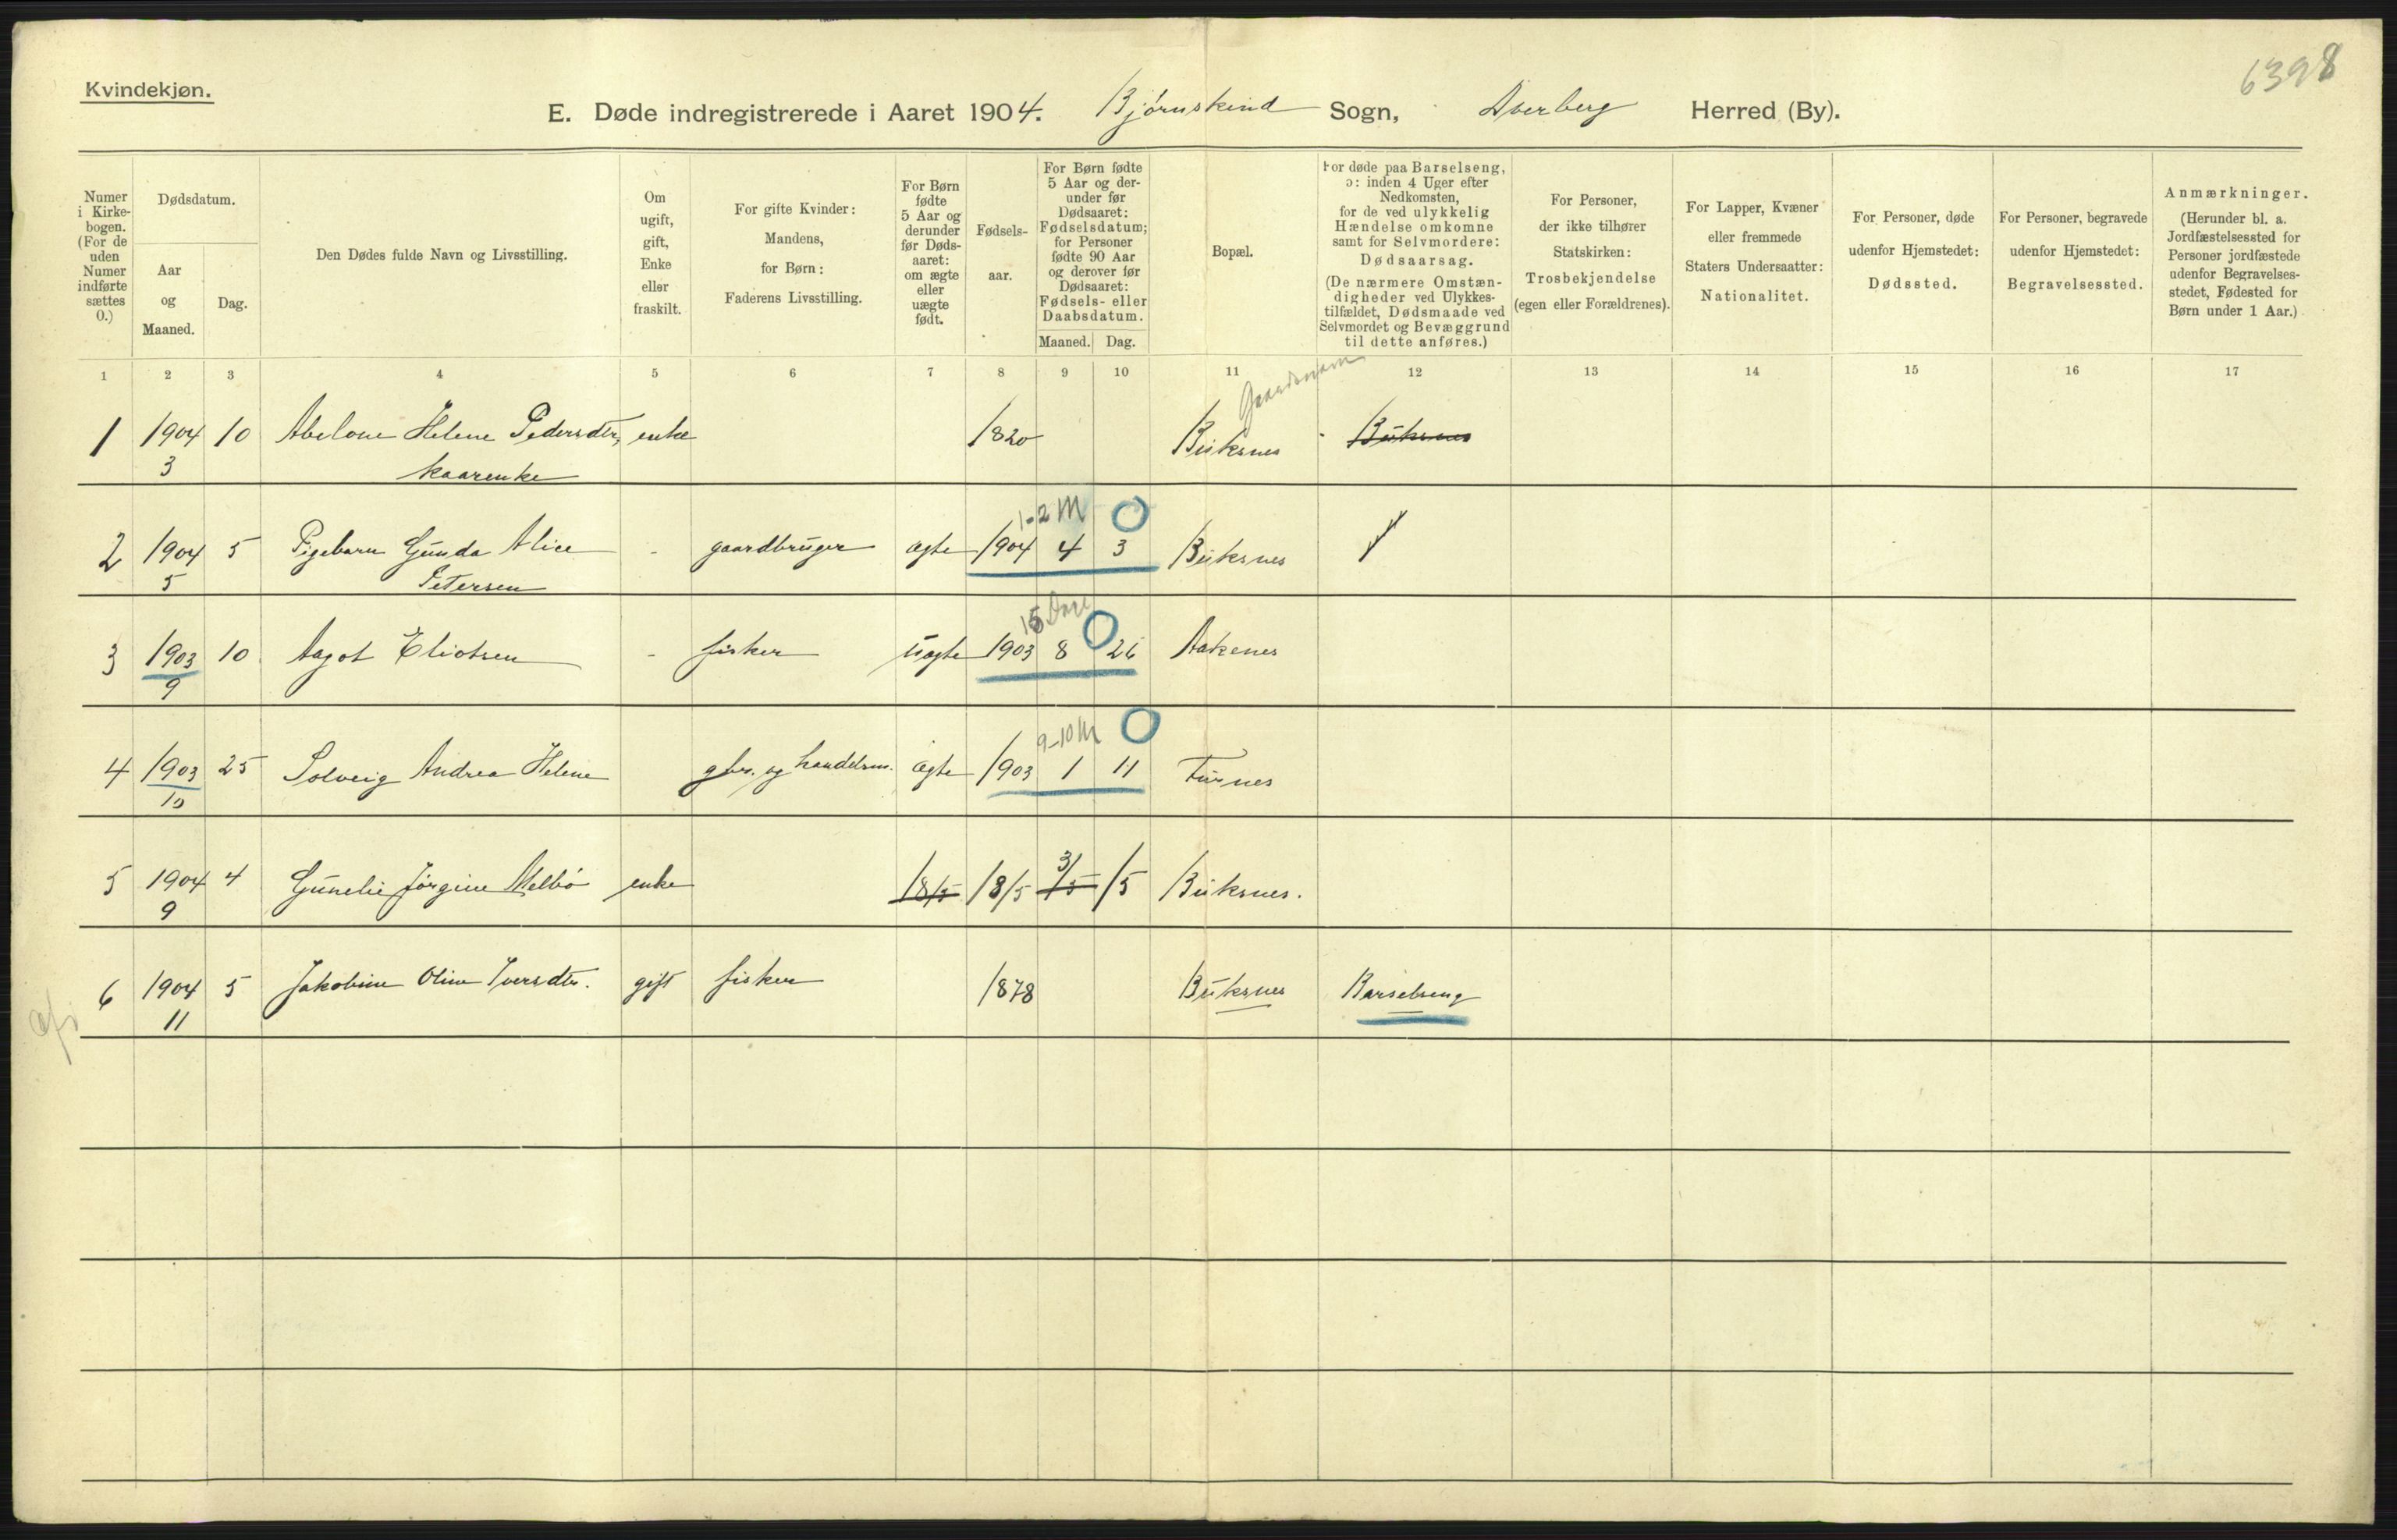 6398
Kvindekjøn.
E. Døde indregistrerede i Aaret 1904. Bjørnskind Sogn, Dverberg Herred (By).
Numer i Kirke-bogen. (For de uden Numer indførte sættes 0.)
Dødsdatum.
Aar og Maaned.
Dag.
Den Dødes fulde Navn og Livsstilling.
Om ugift, gift, Enke eller fraskilt.
For gifte Kvinder: Mandens, for Børn: Faderens Livsstilling.
For Børn fødte 5 Aar og derunder før Døds-aaret: om ægte eller uægte født.
Fødsels-aar.
For Børn fødte 5 Aar og der-under før Dødsaaret: Fødselsdatum; for Personer fødte 90 Aar og derover før Dødsaaret: Fødsels- eller Daabsdatum.
Maaned. Dag.
Bopæl.
For døde paa Barselseng, ɔ: inden 4 Uger efter Nedkomsten, for de ved ulykkelig Hændelse omkomne samt for Selvmordere: Dødsaarsag. (De nærmere Omstæn-digheder ved Ulykkes-tilfældet, Dødsmaade ved Selvmordet og Bevæggrund til dette anføres.)
For Personer, der ikke tilhører Statskirken: Trosbekjendelse (egen eller Forældrenes).
For Lapper, Kvæner eller fremmede Staters Undersaatter: Nationalitet.
For Personer, døde udenfor Hjemstedet: Dødssted.
For Personer, begravede udenfor Hjemstedet: Begravelsessted.
Anmærkninger. (Herunder bl. a. Jordfæstelsessted for Personer jordfæstede udenfor Begravelses-stedet, Fødested for Børn under 1 Aar.)
1 2 3 4 5 6 7 8 9 10 11 12 13 14 15 16 17
Gaardsnavn
1 1904 10 Abelone Helene Pedersdtr, enke 1820 Buksnes Buksnes
3 Kaarenke
1-2 M
2 1904 5 Pigebarn Gunda Alice - gaardbruger ægte 1904 4 3 Buksnes
5 Petersen
15 Dage
3 1903 10 Aagot Eliotsen - fisker uægte 1903 8 26 Aakenes
9
9-10 M
4 1903 25 Solveig Andrea Helene gbr. og handelsm. ægte 1903 1 11 Turnes
10
5 1904 4 Gunelie Jørgine Melbö enke 18/5 18/5 3/5 15 Buksnes.
9
6 1904 5 Jakobine Oline Iversdtr. gift fisker 1878 Buksnes Barselseng
11